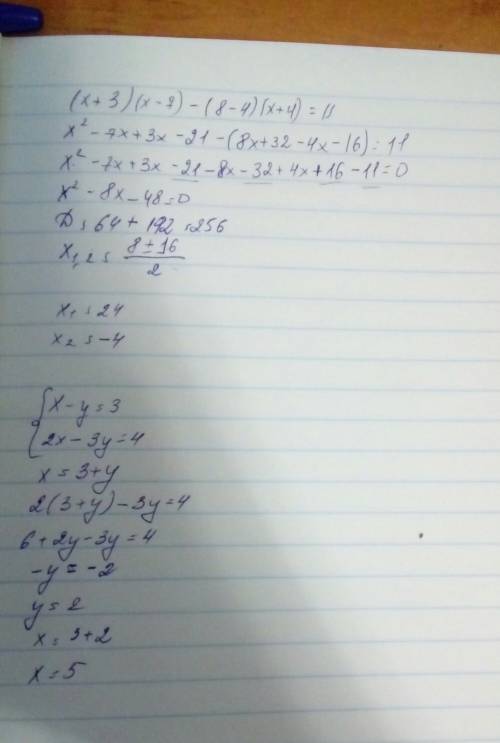 (x+3)(x-7)-(8-4)(x+4)=11
x²-7x+3x-21-(8x+32-4x-16)=11
x²-7x+3x-21-8x-32+4x+16-11=0
x²-8x-48=0
D=64+192=256
x1,2=(8±16)/2
x1=24
x2=-4
{x-y=3
2x-3y=4
x=3+y
2(3+y)-3y=4
6+2y-3y=4
-y=-2
y=2
x=3+2
x=5